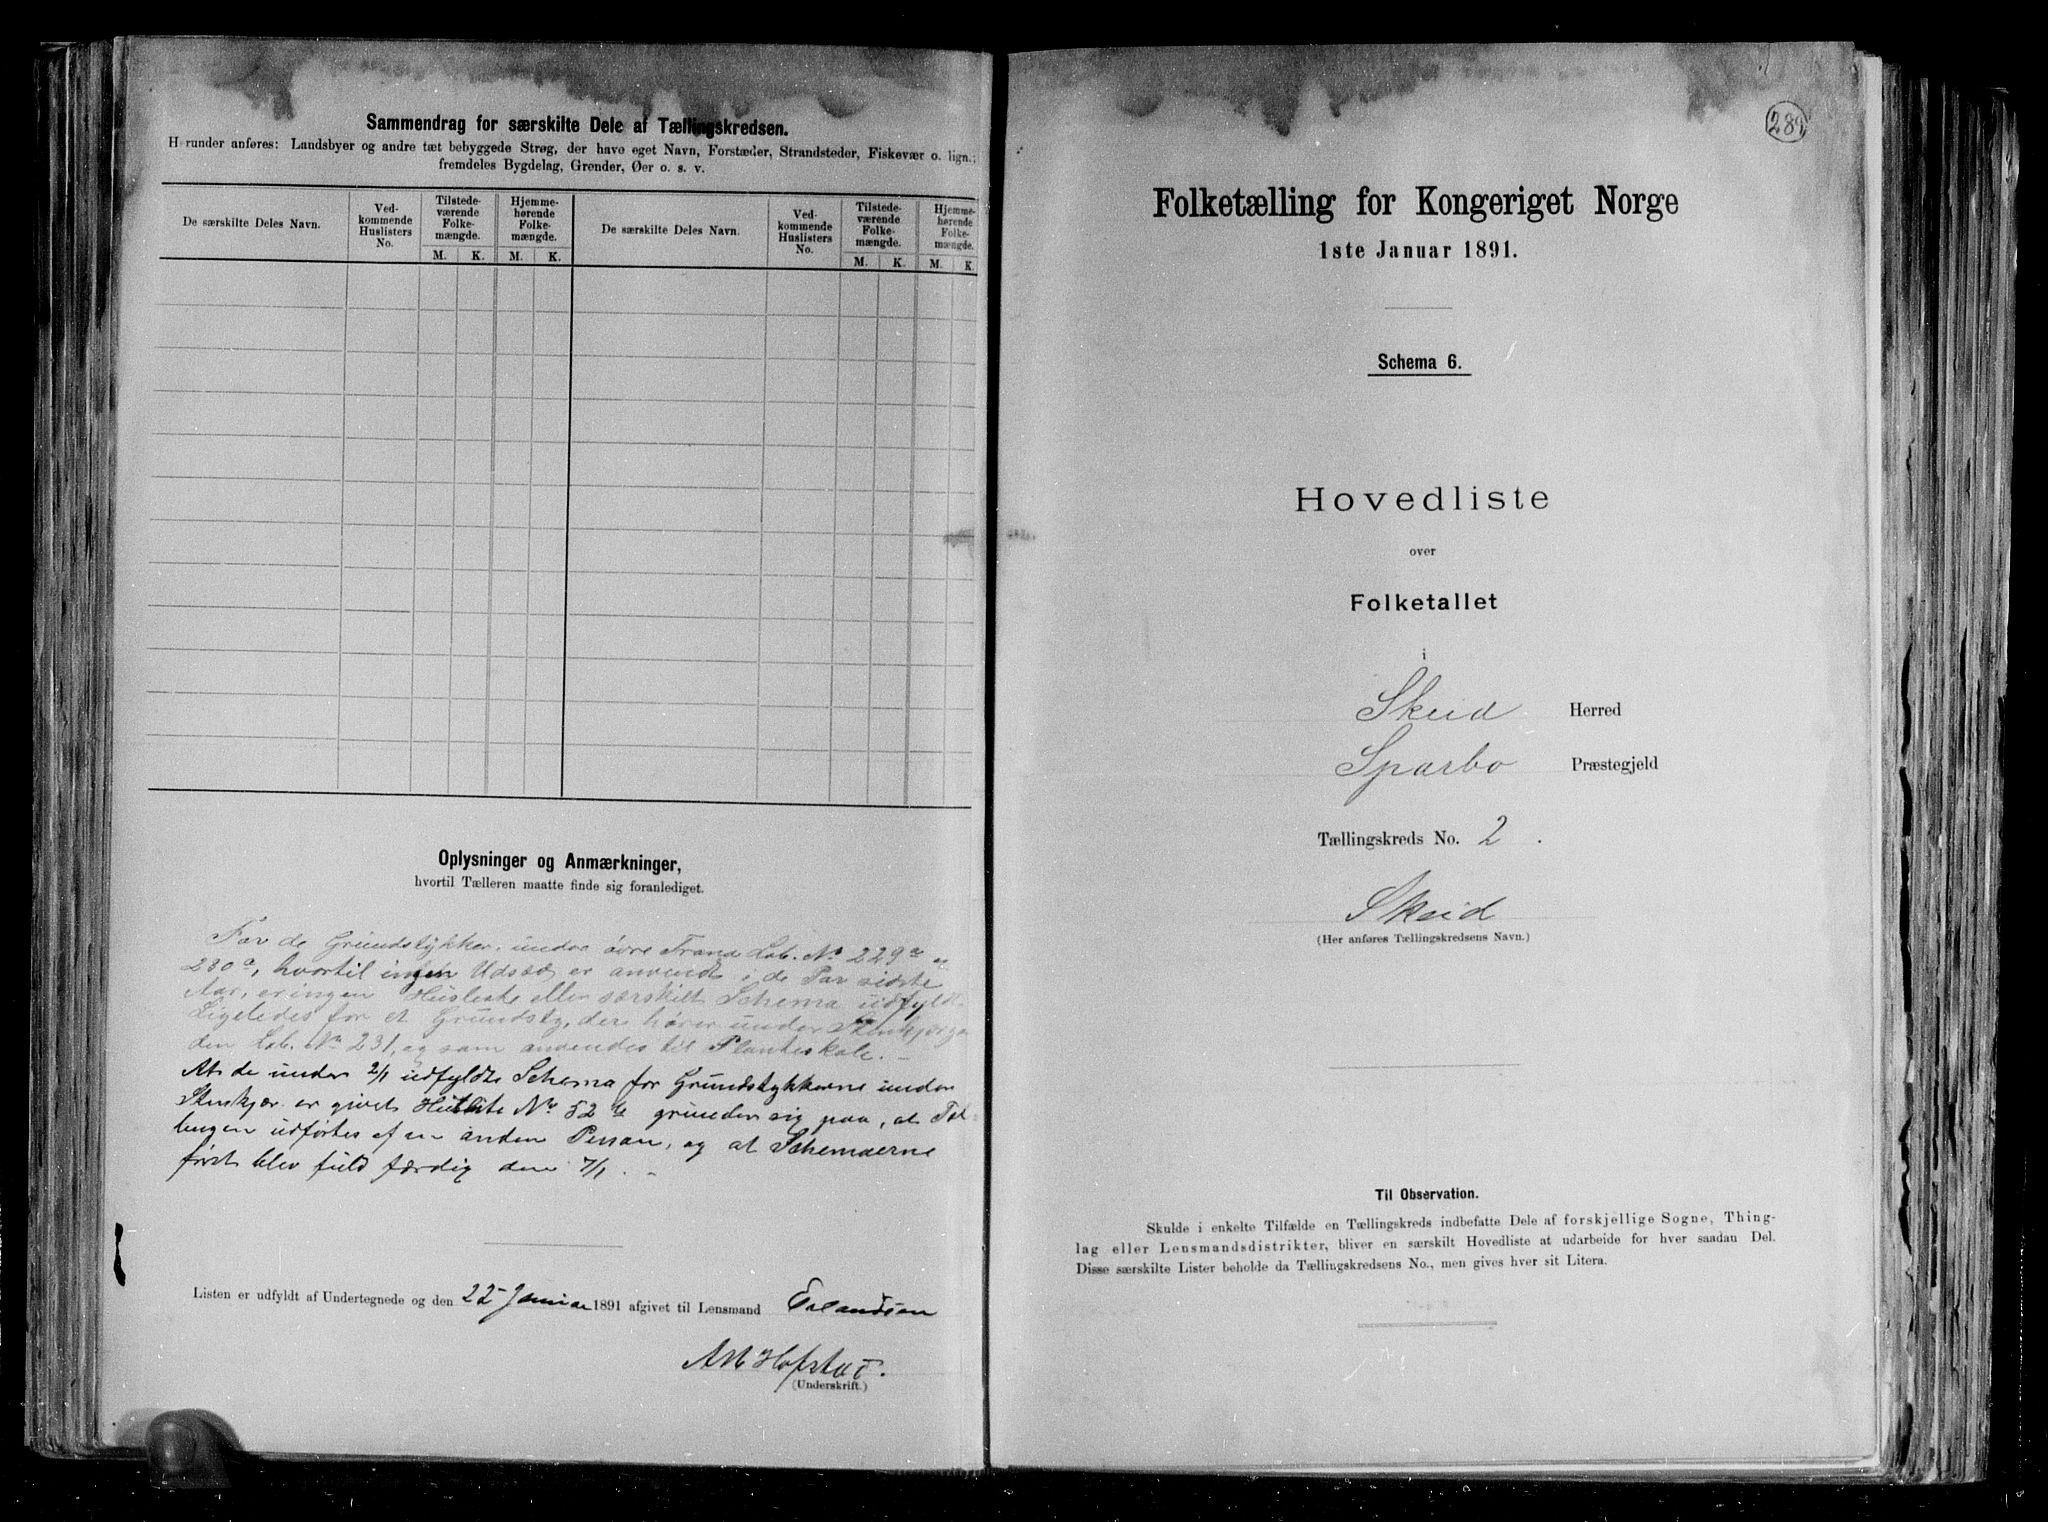 Sammendrag for særskilte Dele af Tællingskredsen.
Herunder anføres: Landsbyer og andre tæt bebyggede Strøg, der have eget Navn, Forstæder, Strandsteder, Fiskevær o. lign.;
fremdeles Bygdelag, Grender, Øer o. s. v.
De særskilte Deles Navn.
Ved-
kommende
Huslisters
No.
Tilstede-
værende
Folke-
mængde.
Hjemme-
hørende
Folke-
mængde.
De særskilte Deles Navn.
Ved-
kommende
Huslisters
No.
Tilstede-
værende
Folke-
mængde.
Hjemme-
hørende
Folke-
mængde.
M. K. M. K. M. K. M. K.
Oplysninger og Anmærkninger,
hvortil Tælleren maatte finde sig foranlediget.
For de Grundstykker, under øvre Trana Lob. No 229a og
230a, hvortil ingen Udsæd er anvendt i de Par sidste
Aar, er ingen Husliste eller særskilt Schema udfyldt.
Ligeledes for et Grundst., der hører under
den Lob. No 231, og som anvendes til Planteskole. —
At de under 2/1 udfyldte Schema for Grundstykkerne under
Stenkjær er givet Husliste No 52 grunder sig paa, at Tæl-
lingen udførtes af en anden Person, og at Schemaerne
først blev fuld færdig den 7/1. —
Listen er udfyldt af Undertegnede og den 22 Januar 1891 afgivet til Lensmand Erlandsen
Hofstad.
(Underskrift.)
289
Folketælling for Kongeriget Norge
1ste Januar 1891.
Schema 6.
Hovedliste
over
Folketallet
i
Skeid Herred
Sparbo Præstegjeld
Tællingskreds No. 2.
Skeid
(Her anføres Tællingskredsens Navn.)
Til Observation.
Skulde i enkelte Tilfælde en Tællingskreds indbefatte Dele af forskjellige Sogne, Thing-
lag eller Lensmandsdistrikter, bliver en særskilt Hovedliste at udarbeide for hver saadan Del.
Disse særskilte Lister beholde da Tællingskredsens No., men gives hver sit Litera.